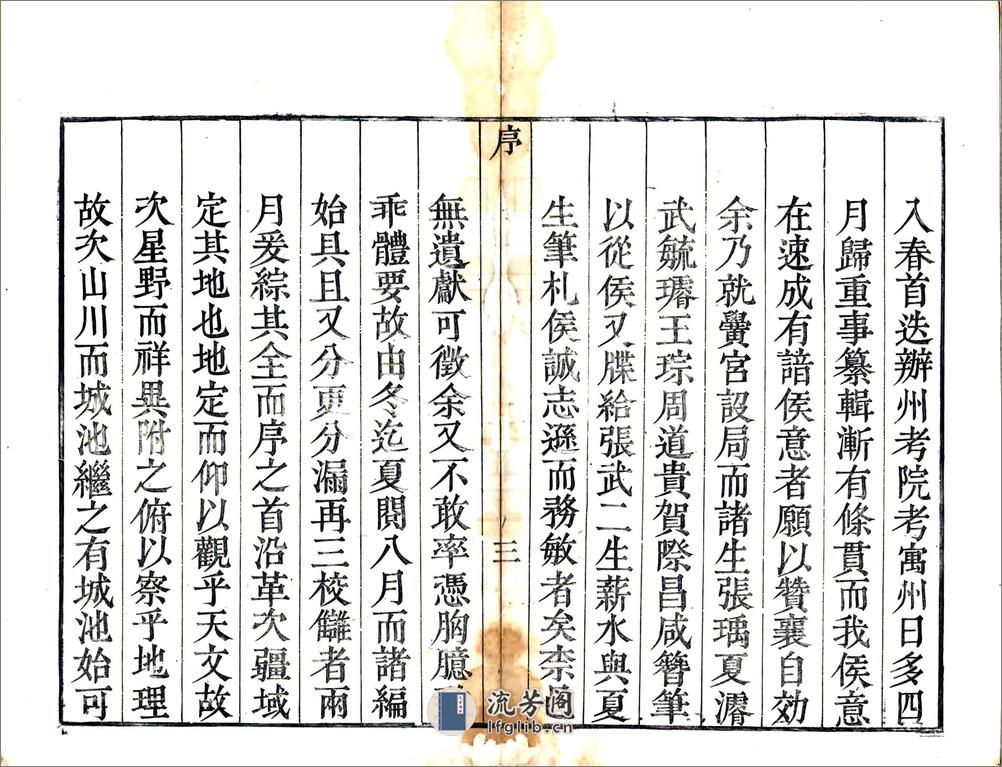 入春首迭辦州考院考寓州日多四
月歸重事纂輯漸有條貫而我侯意
在速成有諳侯意者願以贊襄自効
余乃就黌宮設局而諸生張瑀夏濬
武毓璿王琮周道貴賀際昌咸簪筆
以從侯又牒給張武二生薪水與夏
生筆札侯誠志遜而務敏者矣柰
序
三
無遺獻可徵余又不敢率憑胸臆
乖體要故由冬迄夏閱八月而諸編
始具且又分更分漏再三校讎者兩
月爰綜其全而序之首沿革次疆域
定其地也地定而仰以觀乎天文故
次星野而祥異附之俯以察乎地理
故次山川而城池繼之有城池始可
流芳阁
lfglib.cn